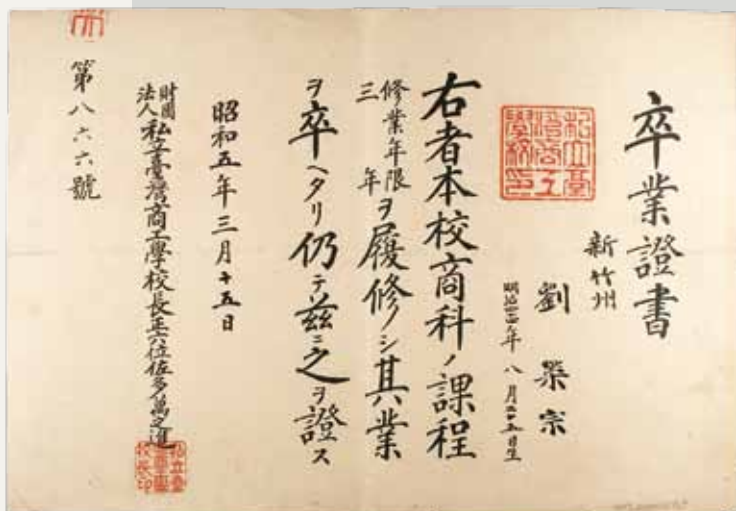 卒業證書
新竹州
劉榮宗
明治四十四年八月二十五日生
私立臺
灣商工
學校印
右者本校商科ノ課程
修業年限三年ヲ履修シ其ノ業
ヲ卒ヘタリ仍テ茲ニ之ヲ證ス
昭和五年三月十五日
財團法人私立臺灣商工學校長正六位佐多萬之進
第八六六號